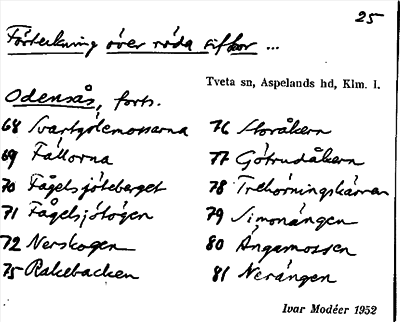 25
Förteckning över röda siffror ...
Tveta sn, Aspelands hd, Klm. l.
Odensås, forts.
68 Svartgölemossarna
69 Fällorna
70 Fågelsjöteberget
71 Fågelsjötögen
72 Nerskogen
75 Rakebacken
76 Storåkern
77 Götrudåkern
78 Trehörningskärran
79 Simonängen
80 Ängamossen
81 Nerängen
Ivar Modéer 1952